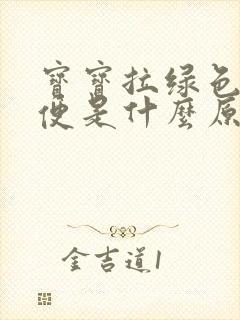 寶寶拉绿色
便是什麼原
金吉道1